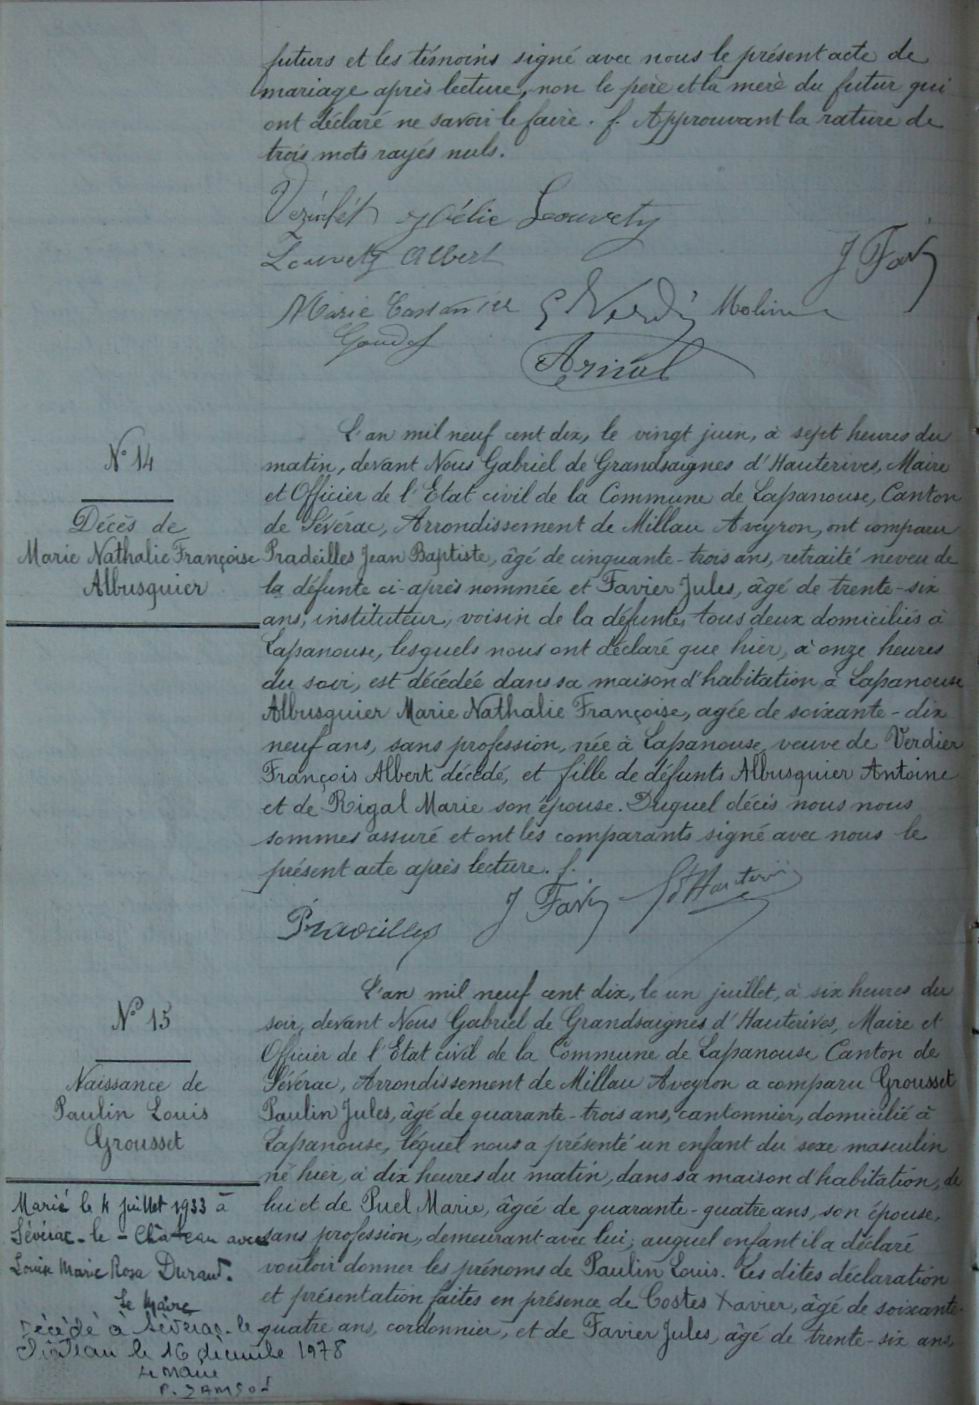 futurs et les témoins signé avec nous le présent acte de
mariage après lecture, non le père et la mère du futur qui
ont déclaré ne savoir le faire. f. Approuvant la rature de
trois mots rayés nuls.
Hélie Louvety
Louvety Albert
J Fav
Marie
G Verdi Molin
Arinal
N° 14
Décès de
Marie Nathalie Françoise
Albusquier
L'an mil neuf cent dix, le vingt juin, à sept heures du
matin, devant Nous Gabriel de Grandsaignes d'Hauterives, Maire
et Officier de l'Etat civil de la Commune de Lapanouse, Canton
de Sévérac, Arrondissement de Millau Aveyron, ont comparu
Pradeilles Jean Baptiste, âgé de cinquante-trois ans, retraité neveu de
la défunte ci-après nommée et Favier Jules, âgé de trente-six
ans, instituteur, voisin de la défunte, tous deux domiciliés à
Lapanouse, lesquels nous ont déclaré que hier, à onze heures
du soir, est décédée dans sa maison d'habitation à Lapanouse
Albusquier Marie Nathalie Françoise, agée de soixante-dix
neuf ans, sans profession, née à Lapanouse, veuve de Verdier
François Albert décédé, et fille de défunts Albusquier Antoine
et de Rigal Marie son épouse. Duquel décès nous nous
sommes assuré et ont les comparants signé avec nous le
présent acte après lecture. f.
Pradeilles J Fav G d'Hauteriv
N° 15
Naissance de
Paulin Louis
Grousset
L'an mil neuf cent dix, le un juillet, à six heures du
soir, devant Nous Gabriel de Grandsaignes d'Hauterives, Maire et
Officier de l'Etat civil de la Commune de Lapanouse Canton de
Sévérac, Arrondissement de Millau Aveyron a comparu Grousset
Paulin Jules, âgé de quarante-trois ans, cantonnier, domicilié à
Lapanouse, lequel nous a présenté un enfant du sexe masculin
né hier, à dix heures du matin, dans sa maison d'habitation, de
lui et de Puel Marie, âgée de quarante-quatre ans, son épouse,
sans profession, demeurant avec lui; auquel enfant il a déclaré
vouloir donner les prénoms de Paulin Louis. Les dites déclaration
et présentation faites en présence de Costes Xavier, âgé de soixante-
quatre ans, cordonnier, et de Favier Jules, âgé de trente-six ans,
Marié le 4 juillet 1933 à
Sévérac-le-Château avec
Louise Marie Rosa Durand.
Le Maire
Décédé à Sévérac-le-
Château le 16 décembre 1978
Le Maire